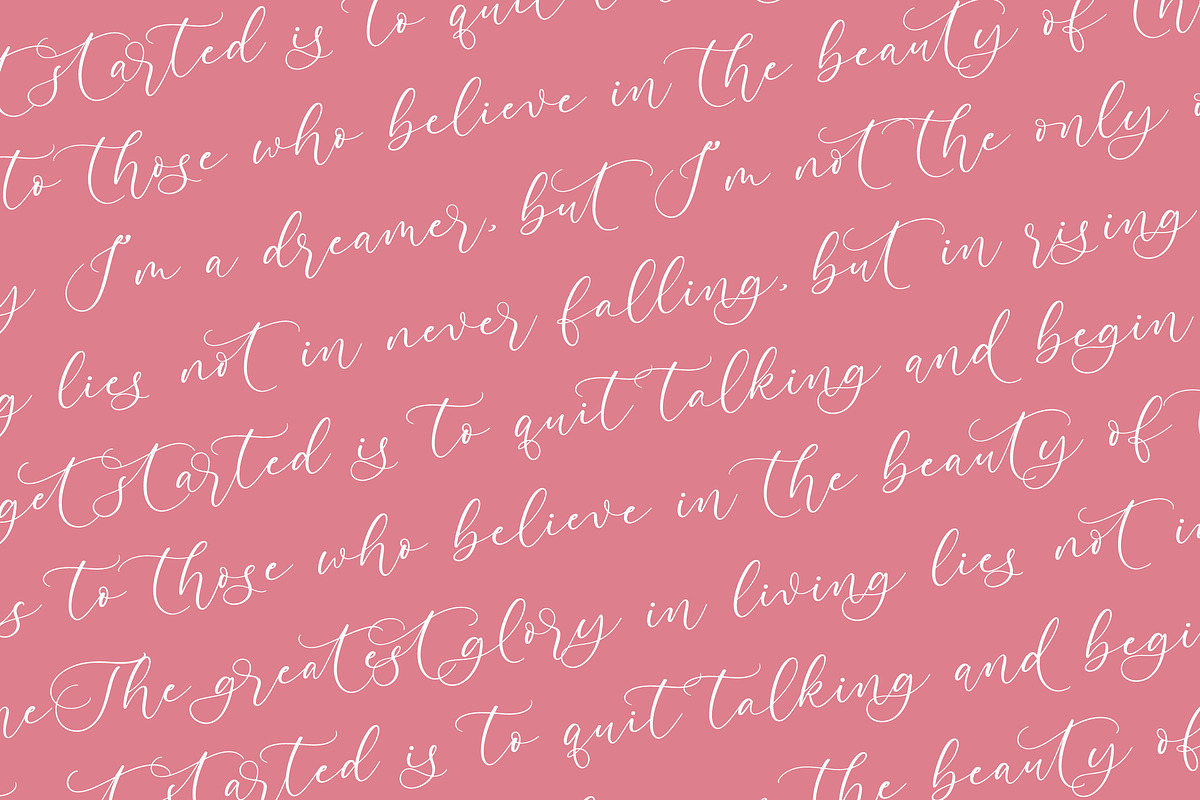 t started is to quit
to those who believe in the beauty of th
y I'm a dreamer, but I'm not the only
g lies not in never falling, but in rising
get started is to quit talking and begin
s to those who believe in the beauty of
ne The greatest glory in living lies not in
t started is to quit talking and begi
the beauty of